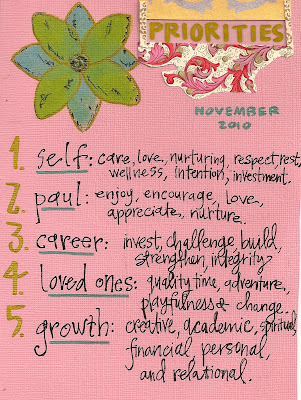 PRIORITIES
NOVEMBER
2010
1. self: care, love, nurturing, respect, rest,
wellness, intention, investment.
2. paul: enjoy, encourage, love,
appreciate, nurture.
3. career: invest, challenge, build,
strengthen, integrity
4. loved ones: quality time, adventure,
playfulness & change.
5. growth: creative, academic, spiritual,
financial, personal,
and relational.